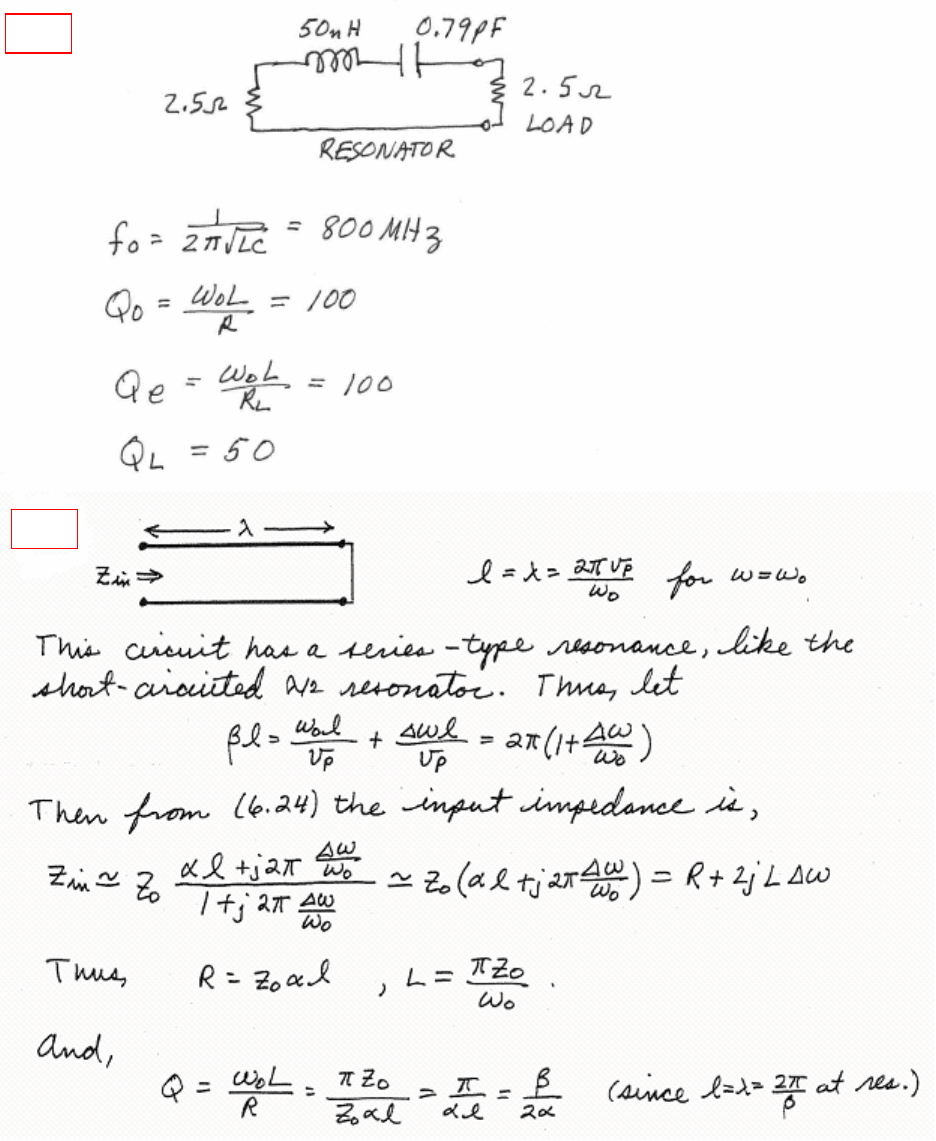 50nH 0.79pF
2.5Ω 2.5Ω
LOAD
RESONATOR
f₀ = 1/(2π√LC) = 800 MHz
Q₀ = ω₀L/R = 100
Qe = ω₀L/R_L = 100
Q_L = 50
λ
Zin ⇒ l = λ = 2πVp/ω₀ for ω=ω₀
This circuit has a series-type resonance, like the
short-circuited λ/2 resonator. Thus, let
βl = ω₀l/Vp + Δωl/Vp = 2π(1+Δω/ω₀)
Then from (6.24) the input impedance is,
Zin ≃ Z₀ (αl + j2π Δω/ω₀)/(1 + j2π Δω/ω₀) ≃ Z₀(αl + j2πΔω/ω₀) = R + 2jLΔω
Thus, R = Z₀αl , L = πZ₀/ω₀ .
And,
Q = ω₀L/R = πZ₀/Z₀αl = π/αl = β/2α (since l=λ=2π/β at res.)